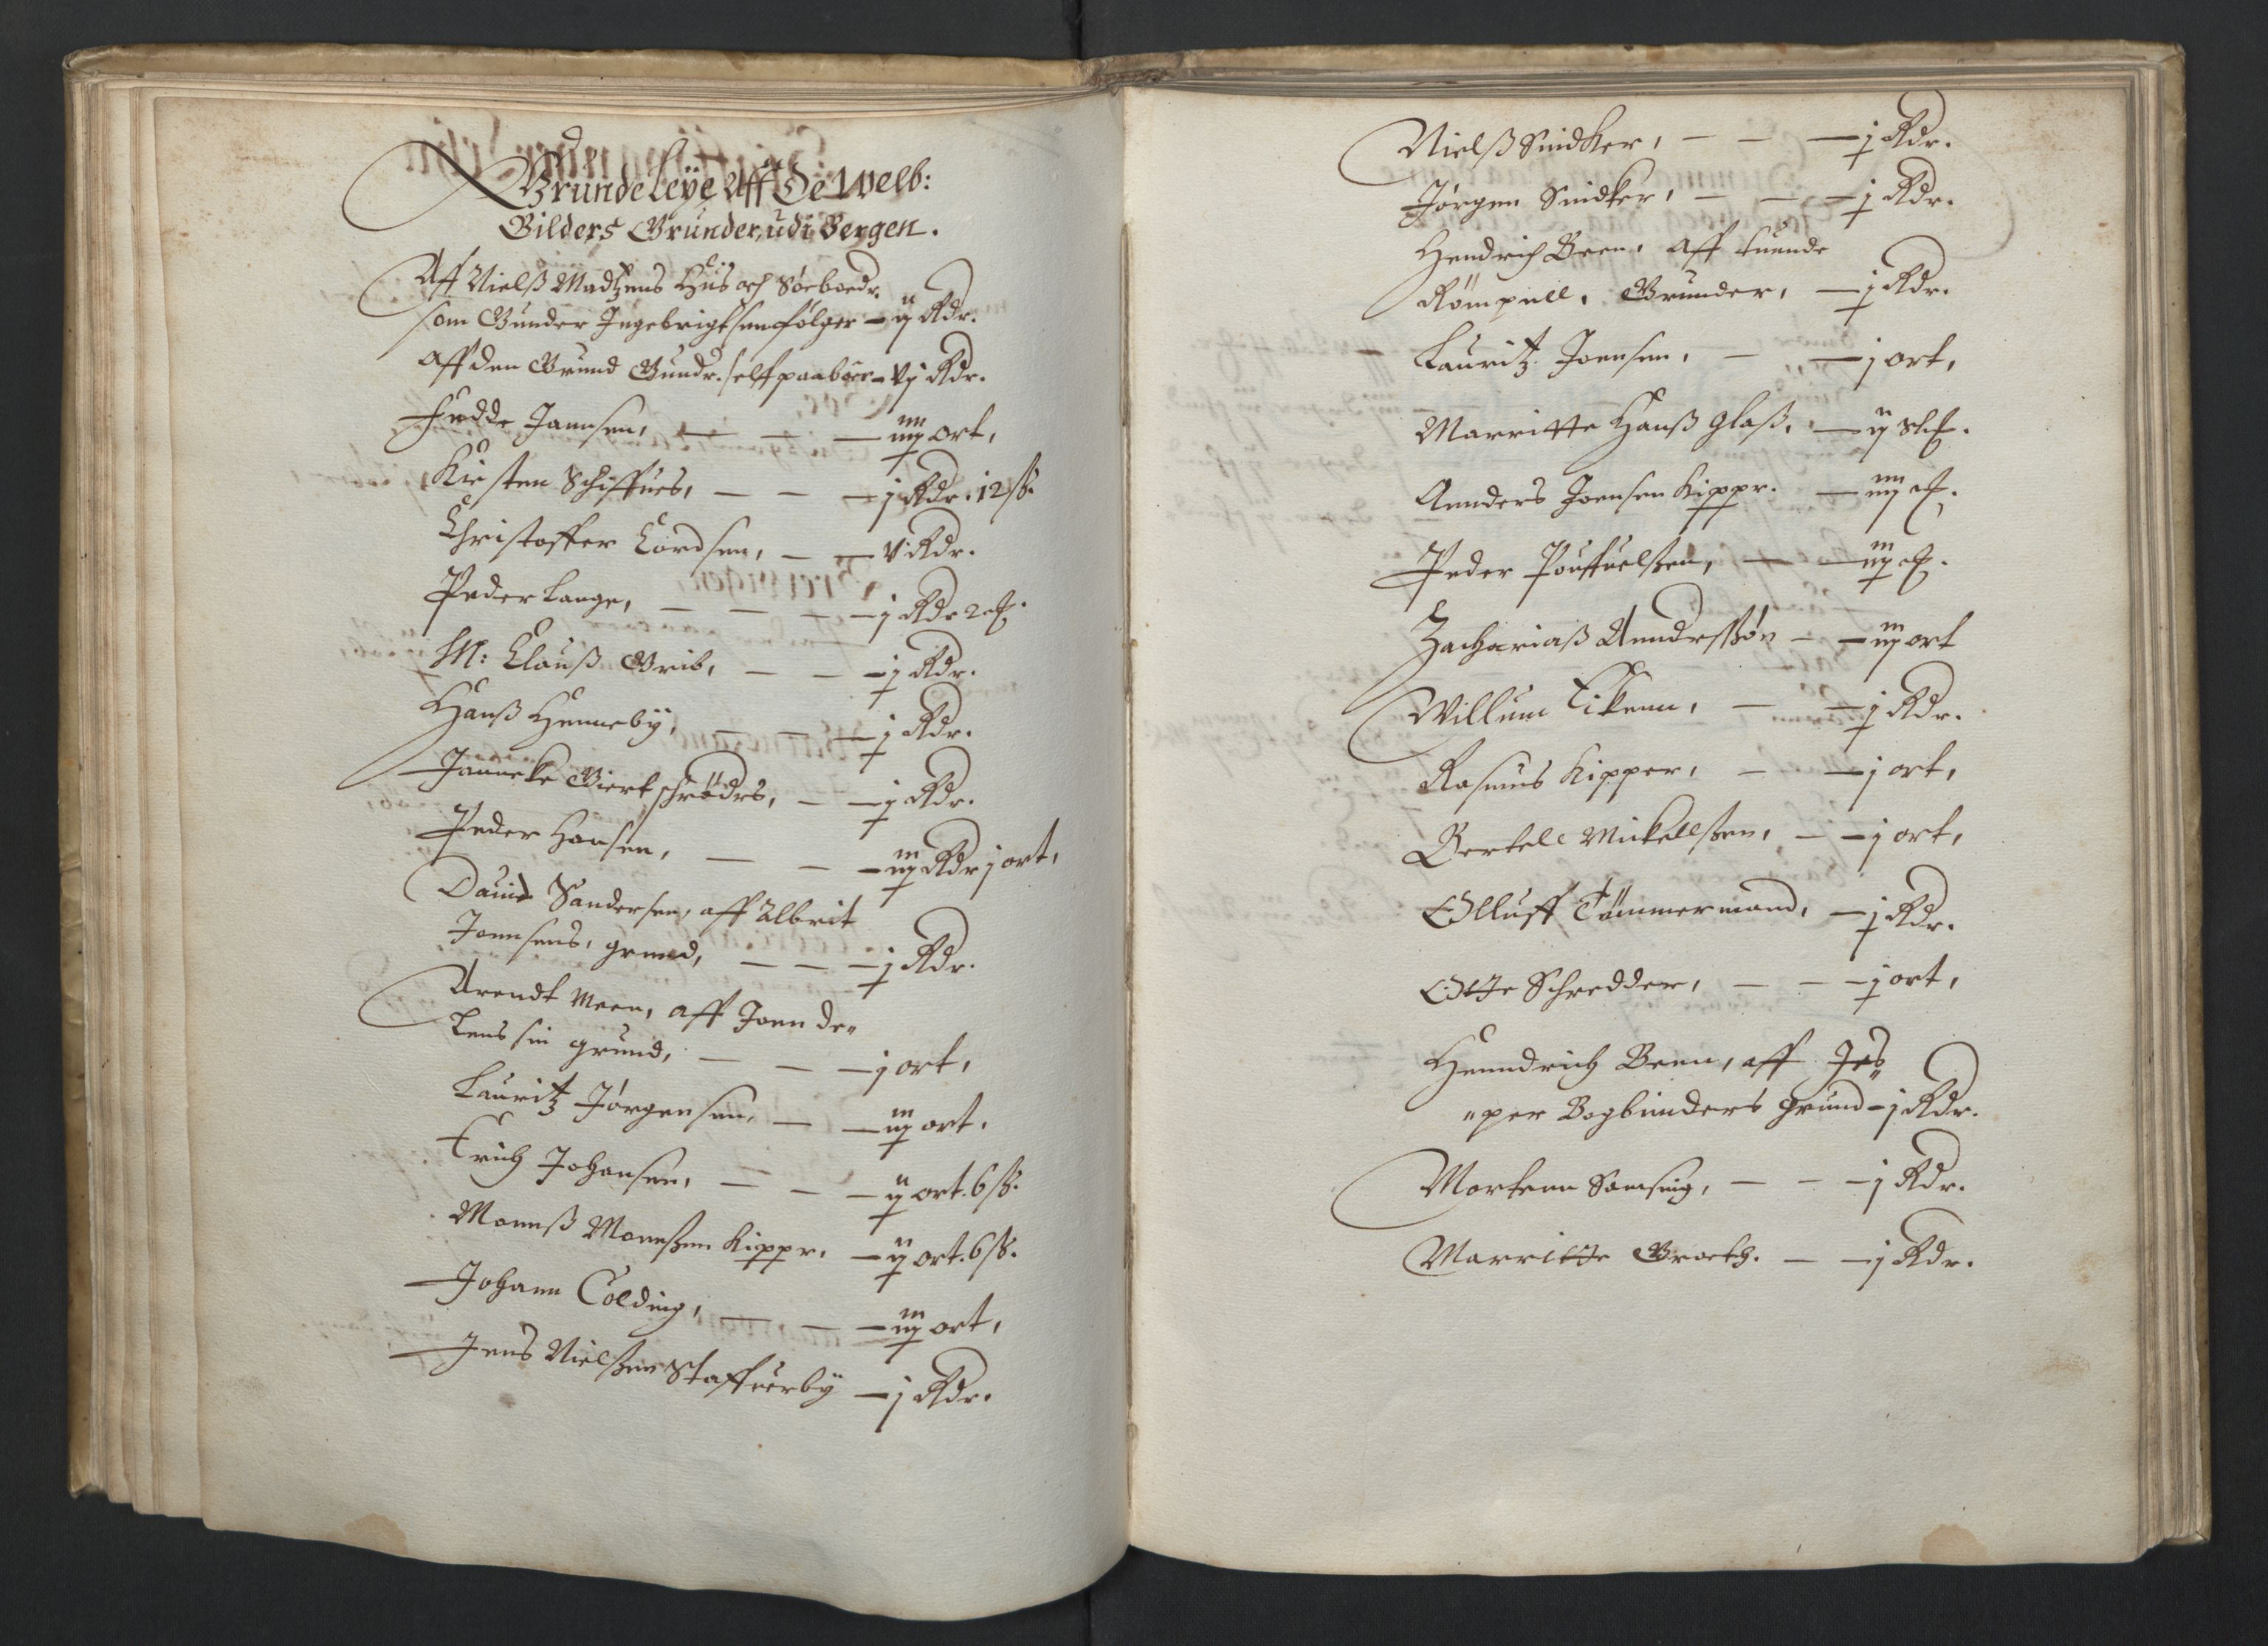 Grundeleÿe Aff De Welb:
Gilders Grunder, udi Bergen.
Aff Nielß Madtzens Huus och Søeboedr.
som Gunder Ingebrigtsen følger – ij Rdr.
Aff den Grund Gundr. self paaboer – vj Rdr.
Fredde Jannsen, – – – iiij ort,
Kirsten Schiffues, – – – j Rdr. 12 ß.
Christoffer Cordsen, – – v Rdr.
Peder Lange, – – – – j Rdr 2 mk.
M: Clauß Grib, – – – j Rdr.
Hanß Hennebÿ, – – – j Rdr.
Janneke Giert schrødrs, – – j Rdr.
Peder Hansen, – – – iij Rdr j ort,
Dauid Sandersen, aff Albrit
Jonnsens, grund, – – – j Rdr.
Arendt Meen, aff Joen de"
lens sin grund, – – – j ort,
Lauritz Jørgensen, – – iij ort.
Erich Johansen, – – – ij ort. 6 ß.
Monnß Monnßen Kippr. – ij ort. 6 ß.
Johann Colding, – – – iij ort,
Jens Nielßen Staffuerbÿ – j Rdr.
Nielß Snidker, – – – j Rdr.
Jørgen Snidker, – – – j Rdr.
Hendrich Been, aff tuende
Rømpell, Grunder, – j Rdr.
Lauritz Joensen, – – j ort,
Marritte Hanß glaß, – ij slet mk.
Annders Joensen Kippr. – iiij mk.
Peder Pouffuelßen, – – iij mk.
Zachariaß Anndersßøn – – iij ort
Willum Eikenn, – – j Rdr.
Rasmus Kipper, – – j ort,
Bertell Mickellßen, – – j ort,
Olluff Tømmermand, – j Rdr.
Otte Schredder, – – – j ort,
Henndrich Been, aff Jes"
"per Bogbinders grund – j Rdr.
Mortenn Samsing, – – – j Rdr.
Marritte Groeth. – – j Rdr.